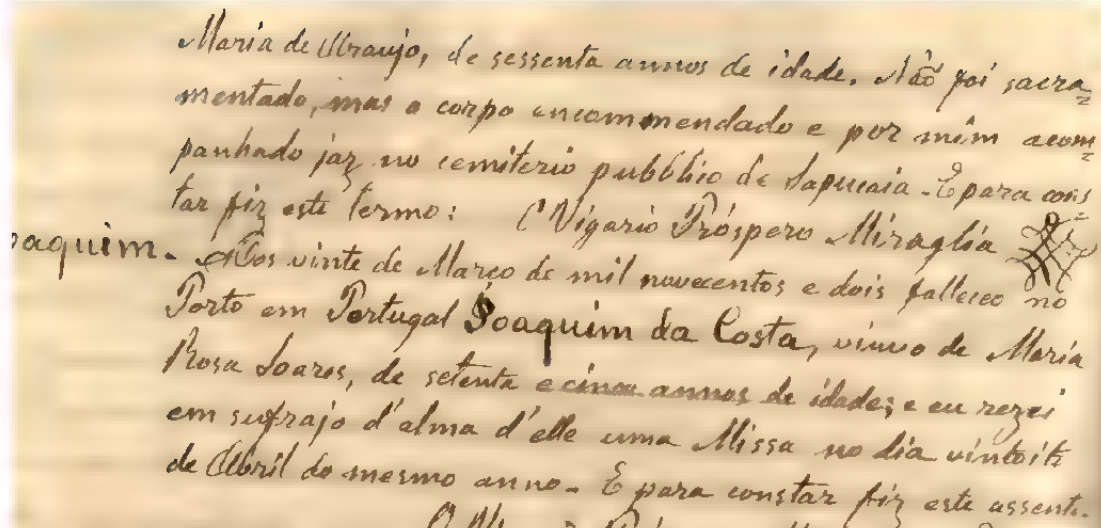 Maria de Araujo, de sessenta annos de idade. Não foi sacra=
mentado, mas o corpo encommendado e por mim acom=
panhado jaz no cemiterio pubblio de Sapucaia. E para cons=
tar fiz este termo: O Vigario Próspero Miraglia
oaquim. Aos vinte de Março de mil novecentos e dois falleceo no
Porto em Portugal Joaquim da Costa, viuvo de Maria
Rosa Soares, de setenta e cinco annos de idade; e eu rezei
em sufrajo d'alma d'elle uma Missa no dia vintoito
de Abril do mesmo anno. E para constar fiz este assento.